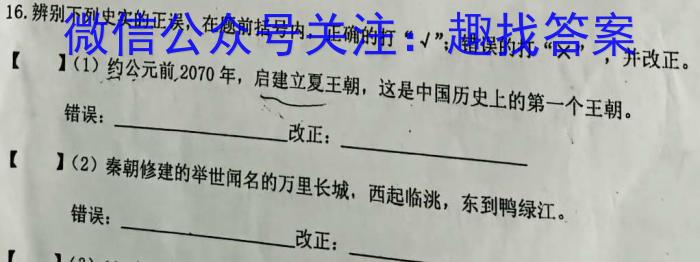 16.辨别下列史实的正误，在题前括号内，正确的打“√”；错误的打“×”，并改正。
微信公众号关注：趣找答案
【 】(1) 约公元前2070年，启建立夏王朝，这是中国历史上的第一个王朝。
错误：改正：
【 】(2) 秦朝修建的举世闻名的万里长城，西起临洮，东到鸭绿江。
错误：改正：